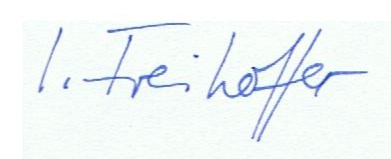 I. Freihöffer